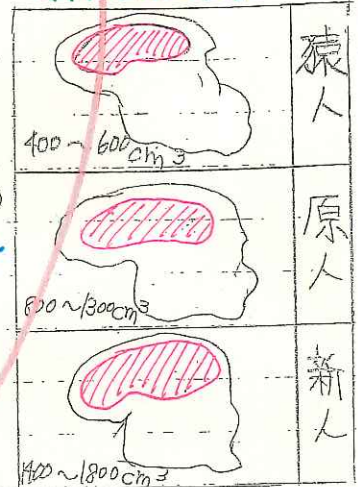 猿人
400~600cm3
原人
800~1300cm3
新人
1400~1800cm3